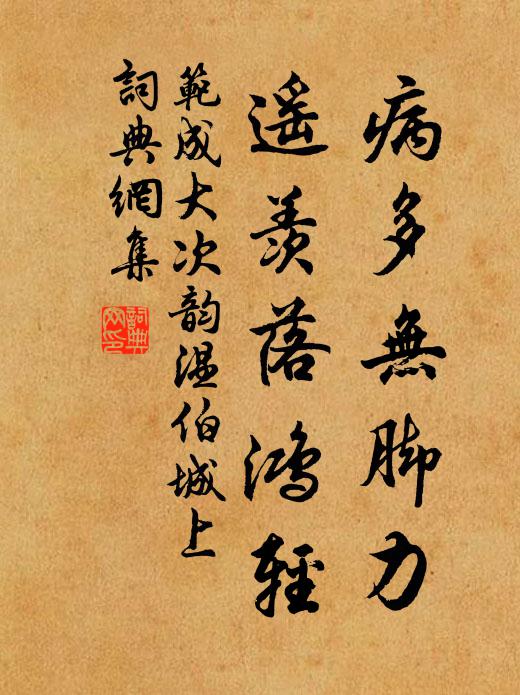 病多無脚力
遥羨落鴻輕
範成大次韵温伯城上
詞典網集
詞典網印